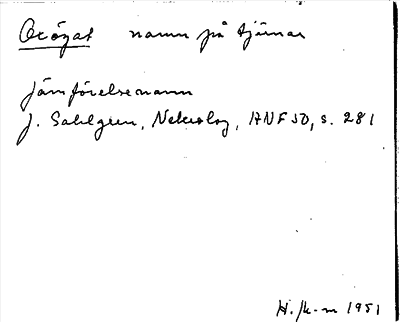 Oxögat namn på tjärnar
Jämförelsenamn
J. Sahlgren, Nekrolog, ANF 50, s. 281
H. /k-m 1951